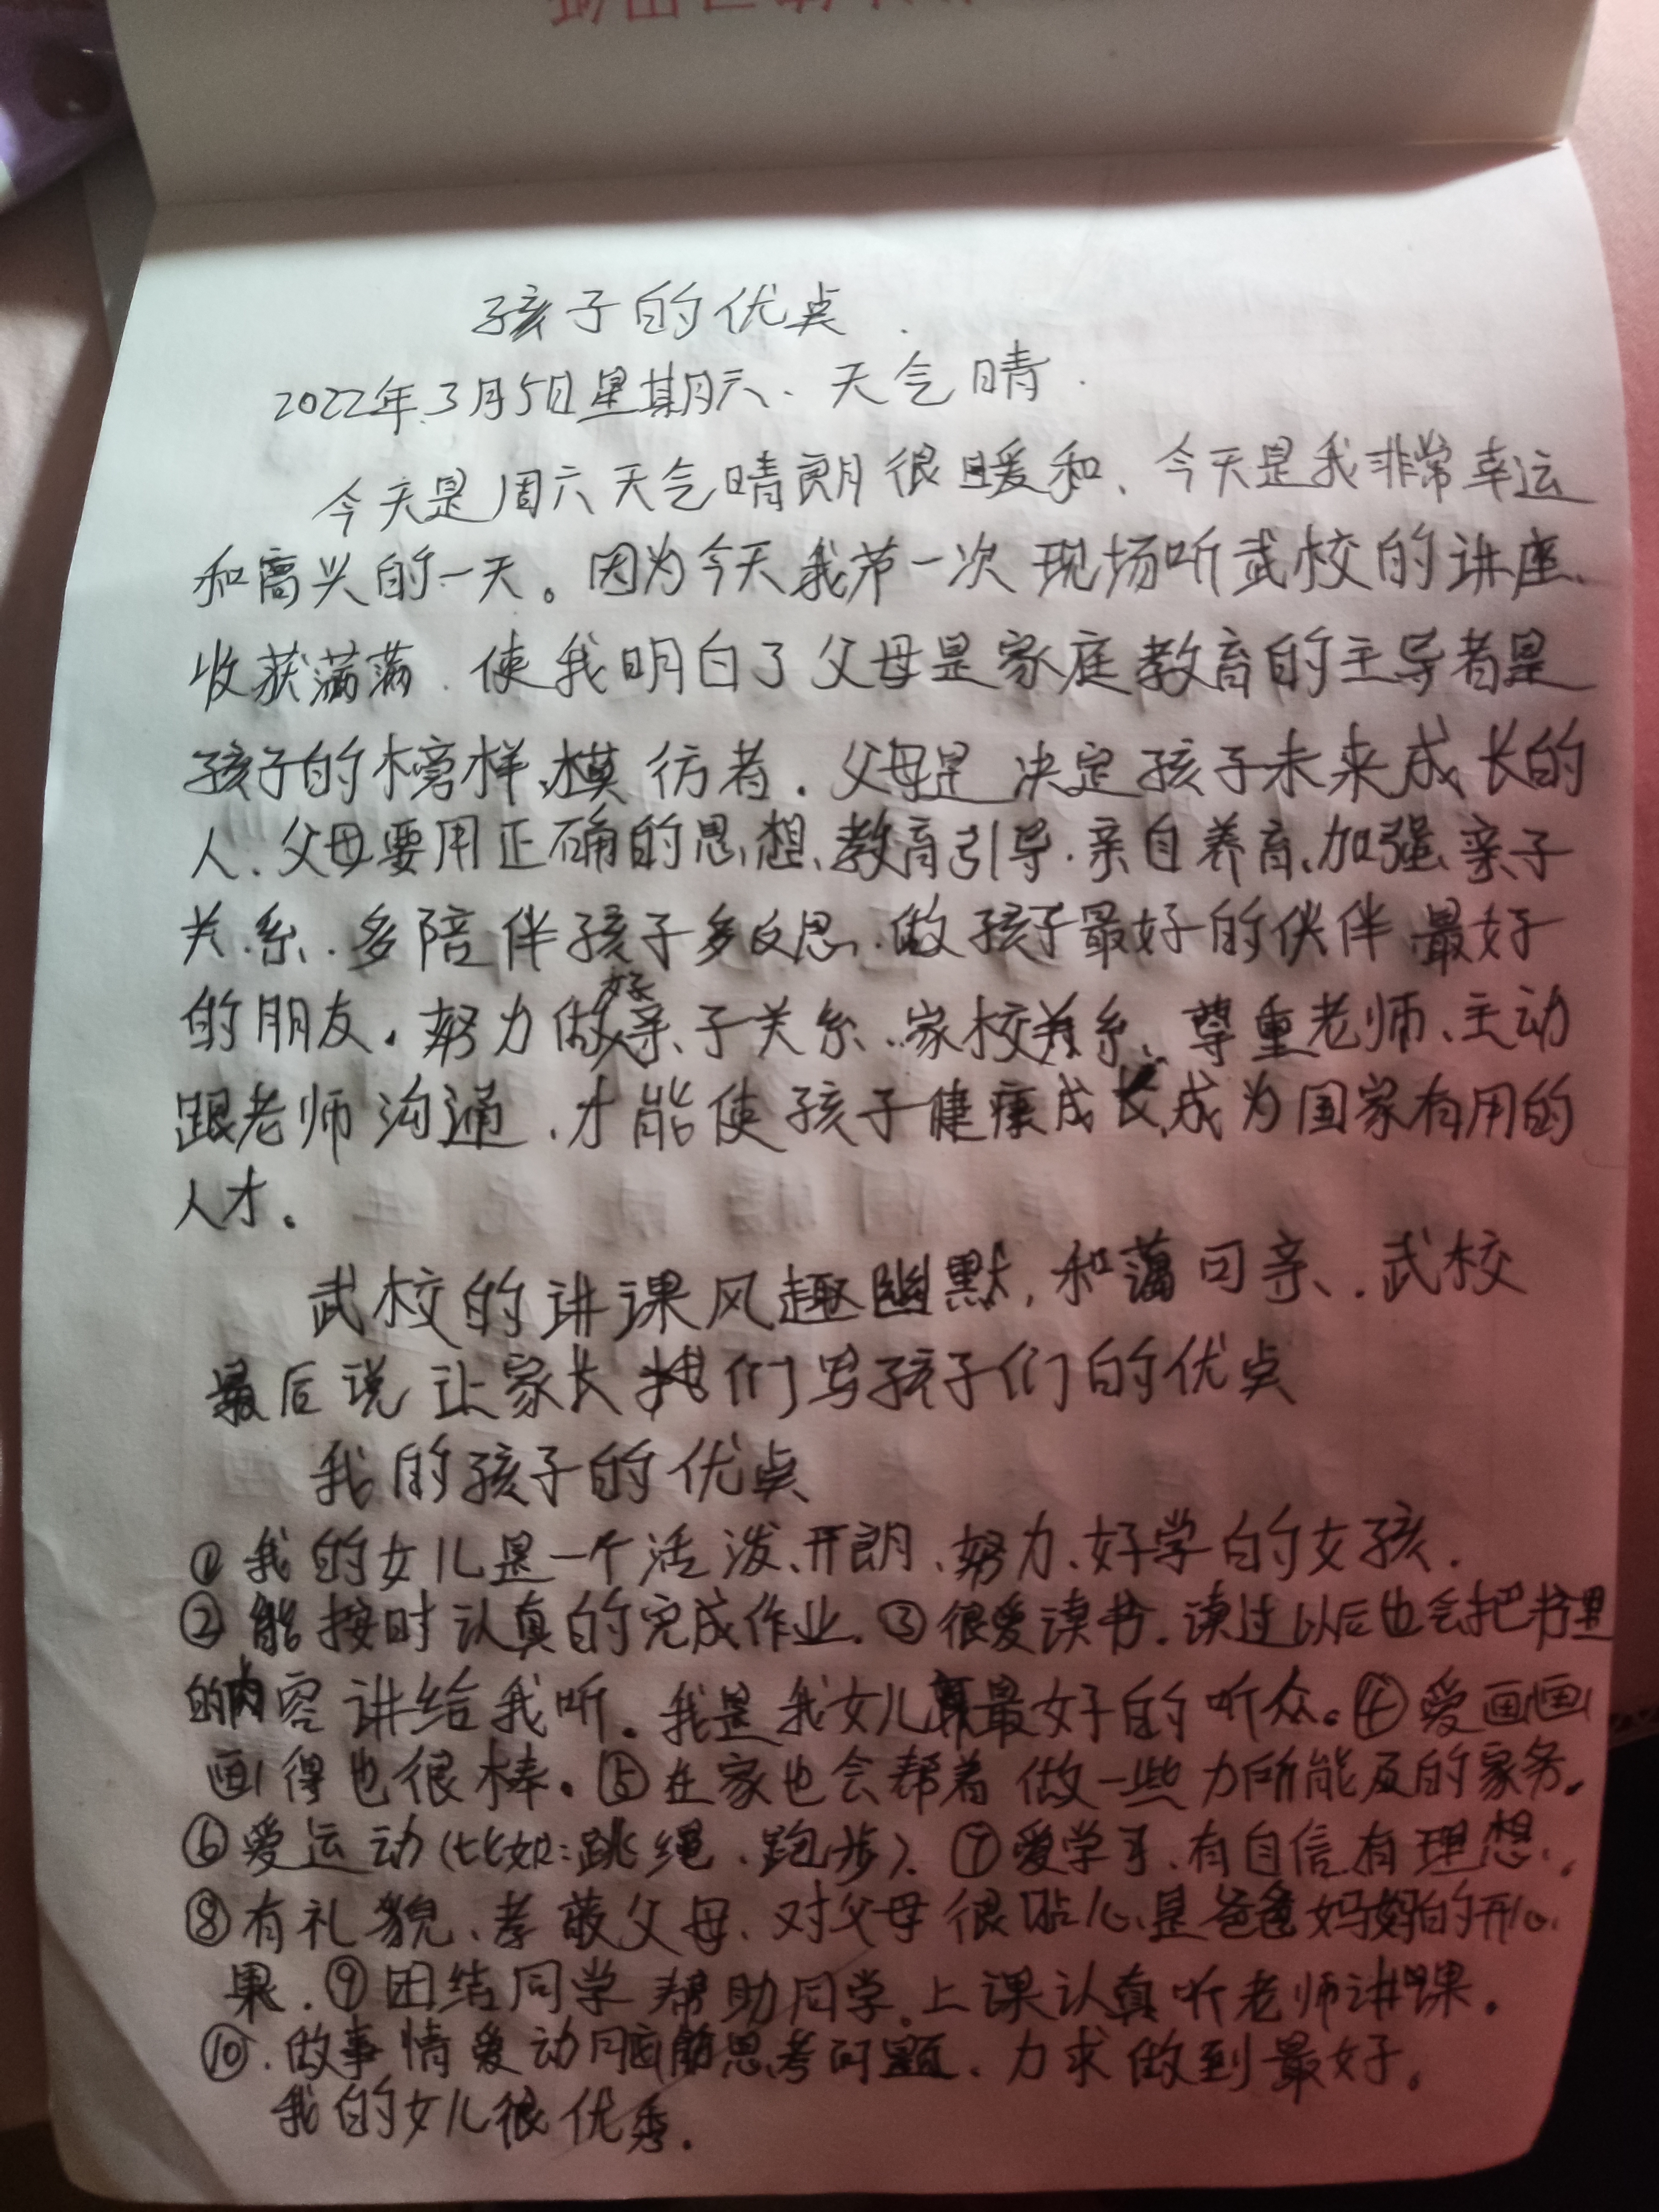 孩子的优点.
2022年.3月5日星期六、天气晴.
今天是周六天气晴朗很暖和、今天是我非常幸运
和高兴的一天。因为今天我第一次现场听武校的讲座、
收获满满.使我明白了父母是家庭教育的主导者是
孩子的榜样、模仿者.父母是决定孩子未来成长的
人、父母要用正确的思想、教育引导.亲自养育、加强亲子
关系.多陪伴孩子多反思、做孩子最好的伙伴最好
的朋友.努力做好亲子关系、家校关系、尊重老师、主动
跟老师沟通、才能使孩子健康成长成为国家有用的
人才。
武校的讲课风趣幽默,和蔼可亲、.武校
最后说让家长们写孩子们的优点
我的孩子的优点
①我的女儿是一个活泼、开朗、努力、好学的女孩.
②能按时认真的完成作业.③很爱读书.读过以后也会把书里
的内容讲给我听。我是我女儿最好的听众。④爱画画
画得也很棒。⑤在家也会帮着做一些力所能及的家务。
⑥爱运动(比如:跳绳、跑步)、⑦爱学习、有自信有理想.
⑧有礼貌、孝敬父母、对父母很贴心、是爸爸妈妈的开心
果.⑨团结同学帮助同学.上课认真听老师讲课.
⑩.做事情爱动脑筋思考问题、力求做到最好。
我的女儿很优秀.